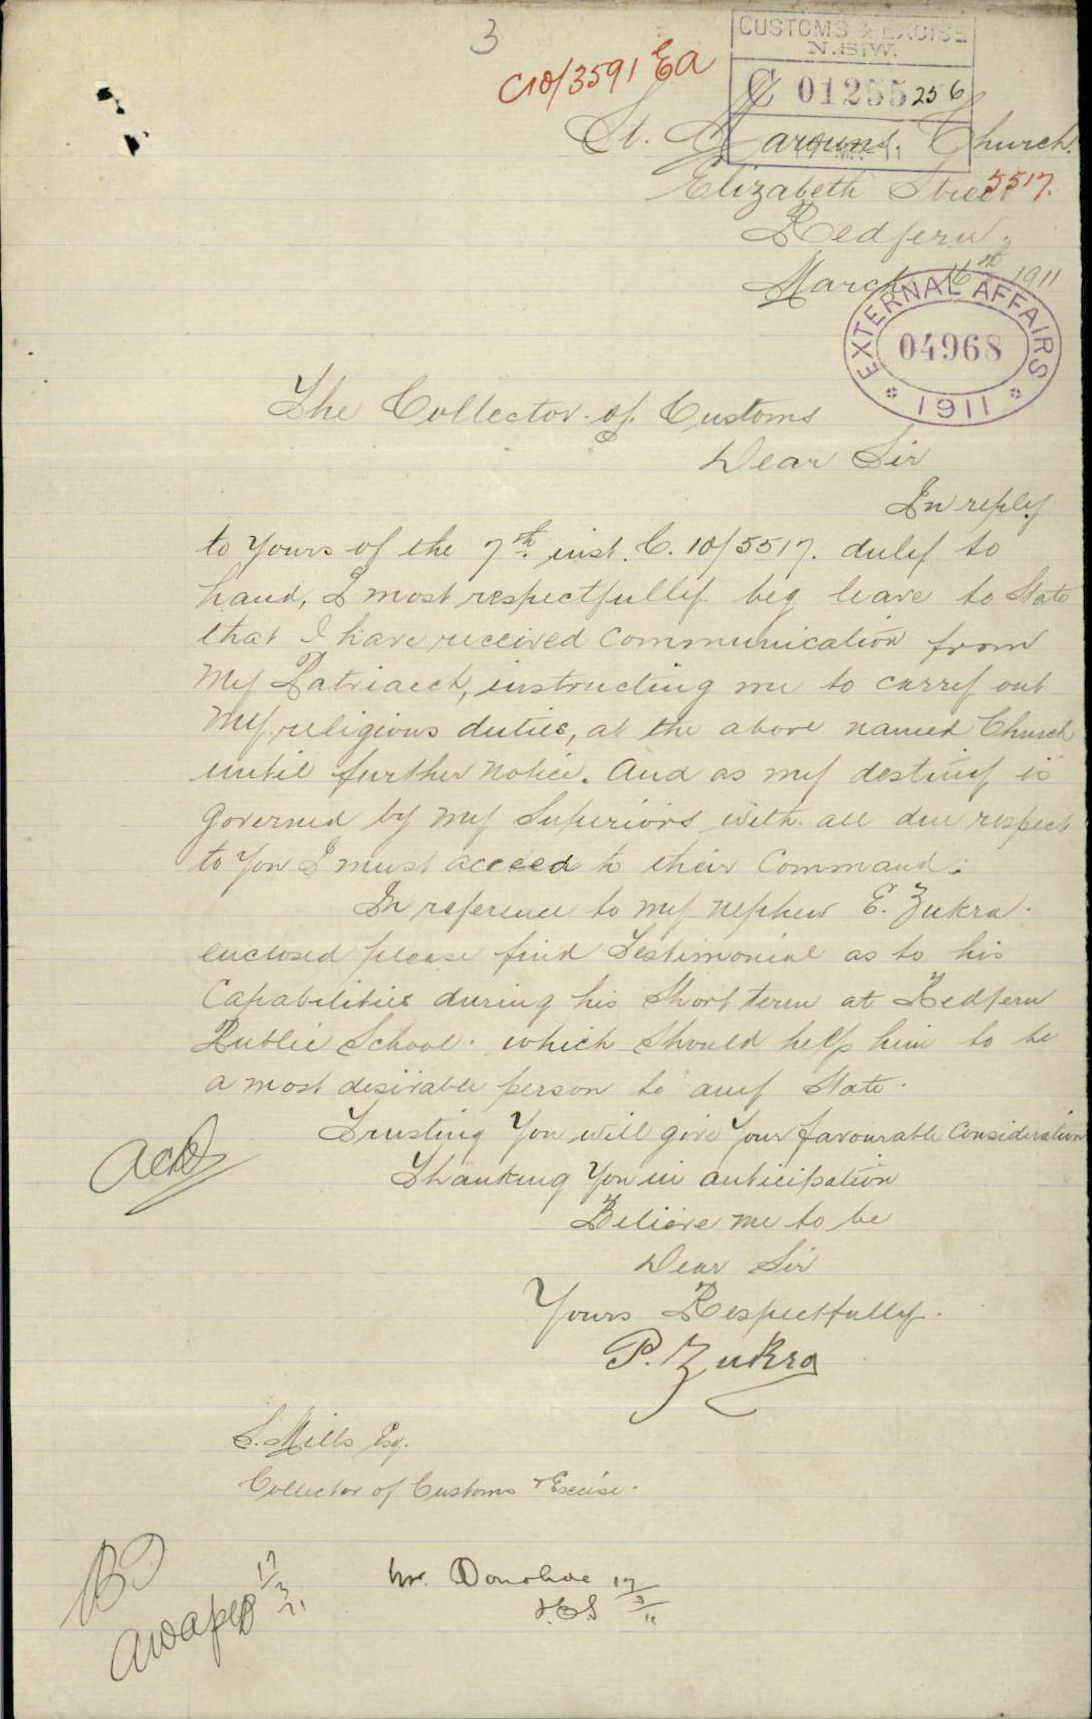 3
C10/3591 EA
CUSTOMS & EXCISE
N.S.W.
C 01255 256
St. Marouns. Church.
Elizabeth Street
5517.
Redfern,
March 16th 1911
EXTERNAL AFFAIRS
04968
1911
The Collector of Customs
Dear Sir
In reply
to Yours of the 7th inst. C. 10/5517. duly to
hand, I most respectfully beg leave to State
that I have received Communication from
My Patriarch, instructing me to carry out
My religious duties, at the above named Church
until further Notice. And as my destiny is
Governed by my Superiors with all due respect
to You I must acceed to their Command.
In reference to my nephew E. Zukra.
enclosed please find Testimonial as to his
Capabilities during his Short term at Redfern
Public School. which should help him to be
a most desirable person to any State.
Trusting You will give Your favourable Consideration
Thanking You in anticipation
Believe me to be
Dear Sir
Yours Respectfully.
P. Zukra
Ackd
S. Mills Esq.
Collector of Customs & Excise.
Mr. Donohoe 17/3/11
BF
17/3/11